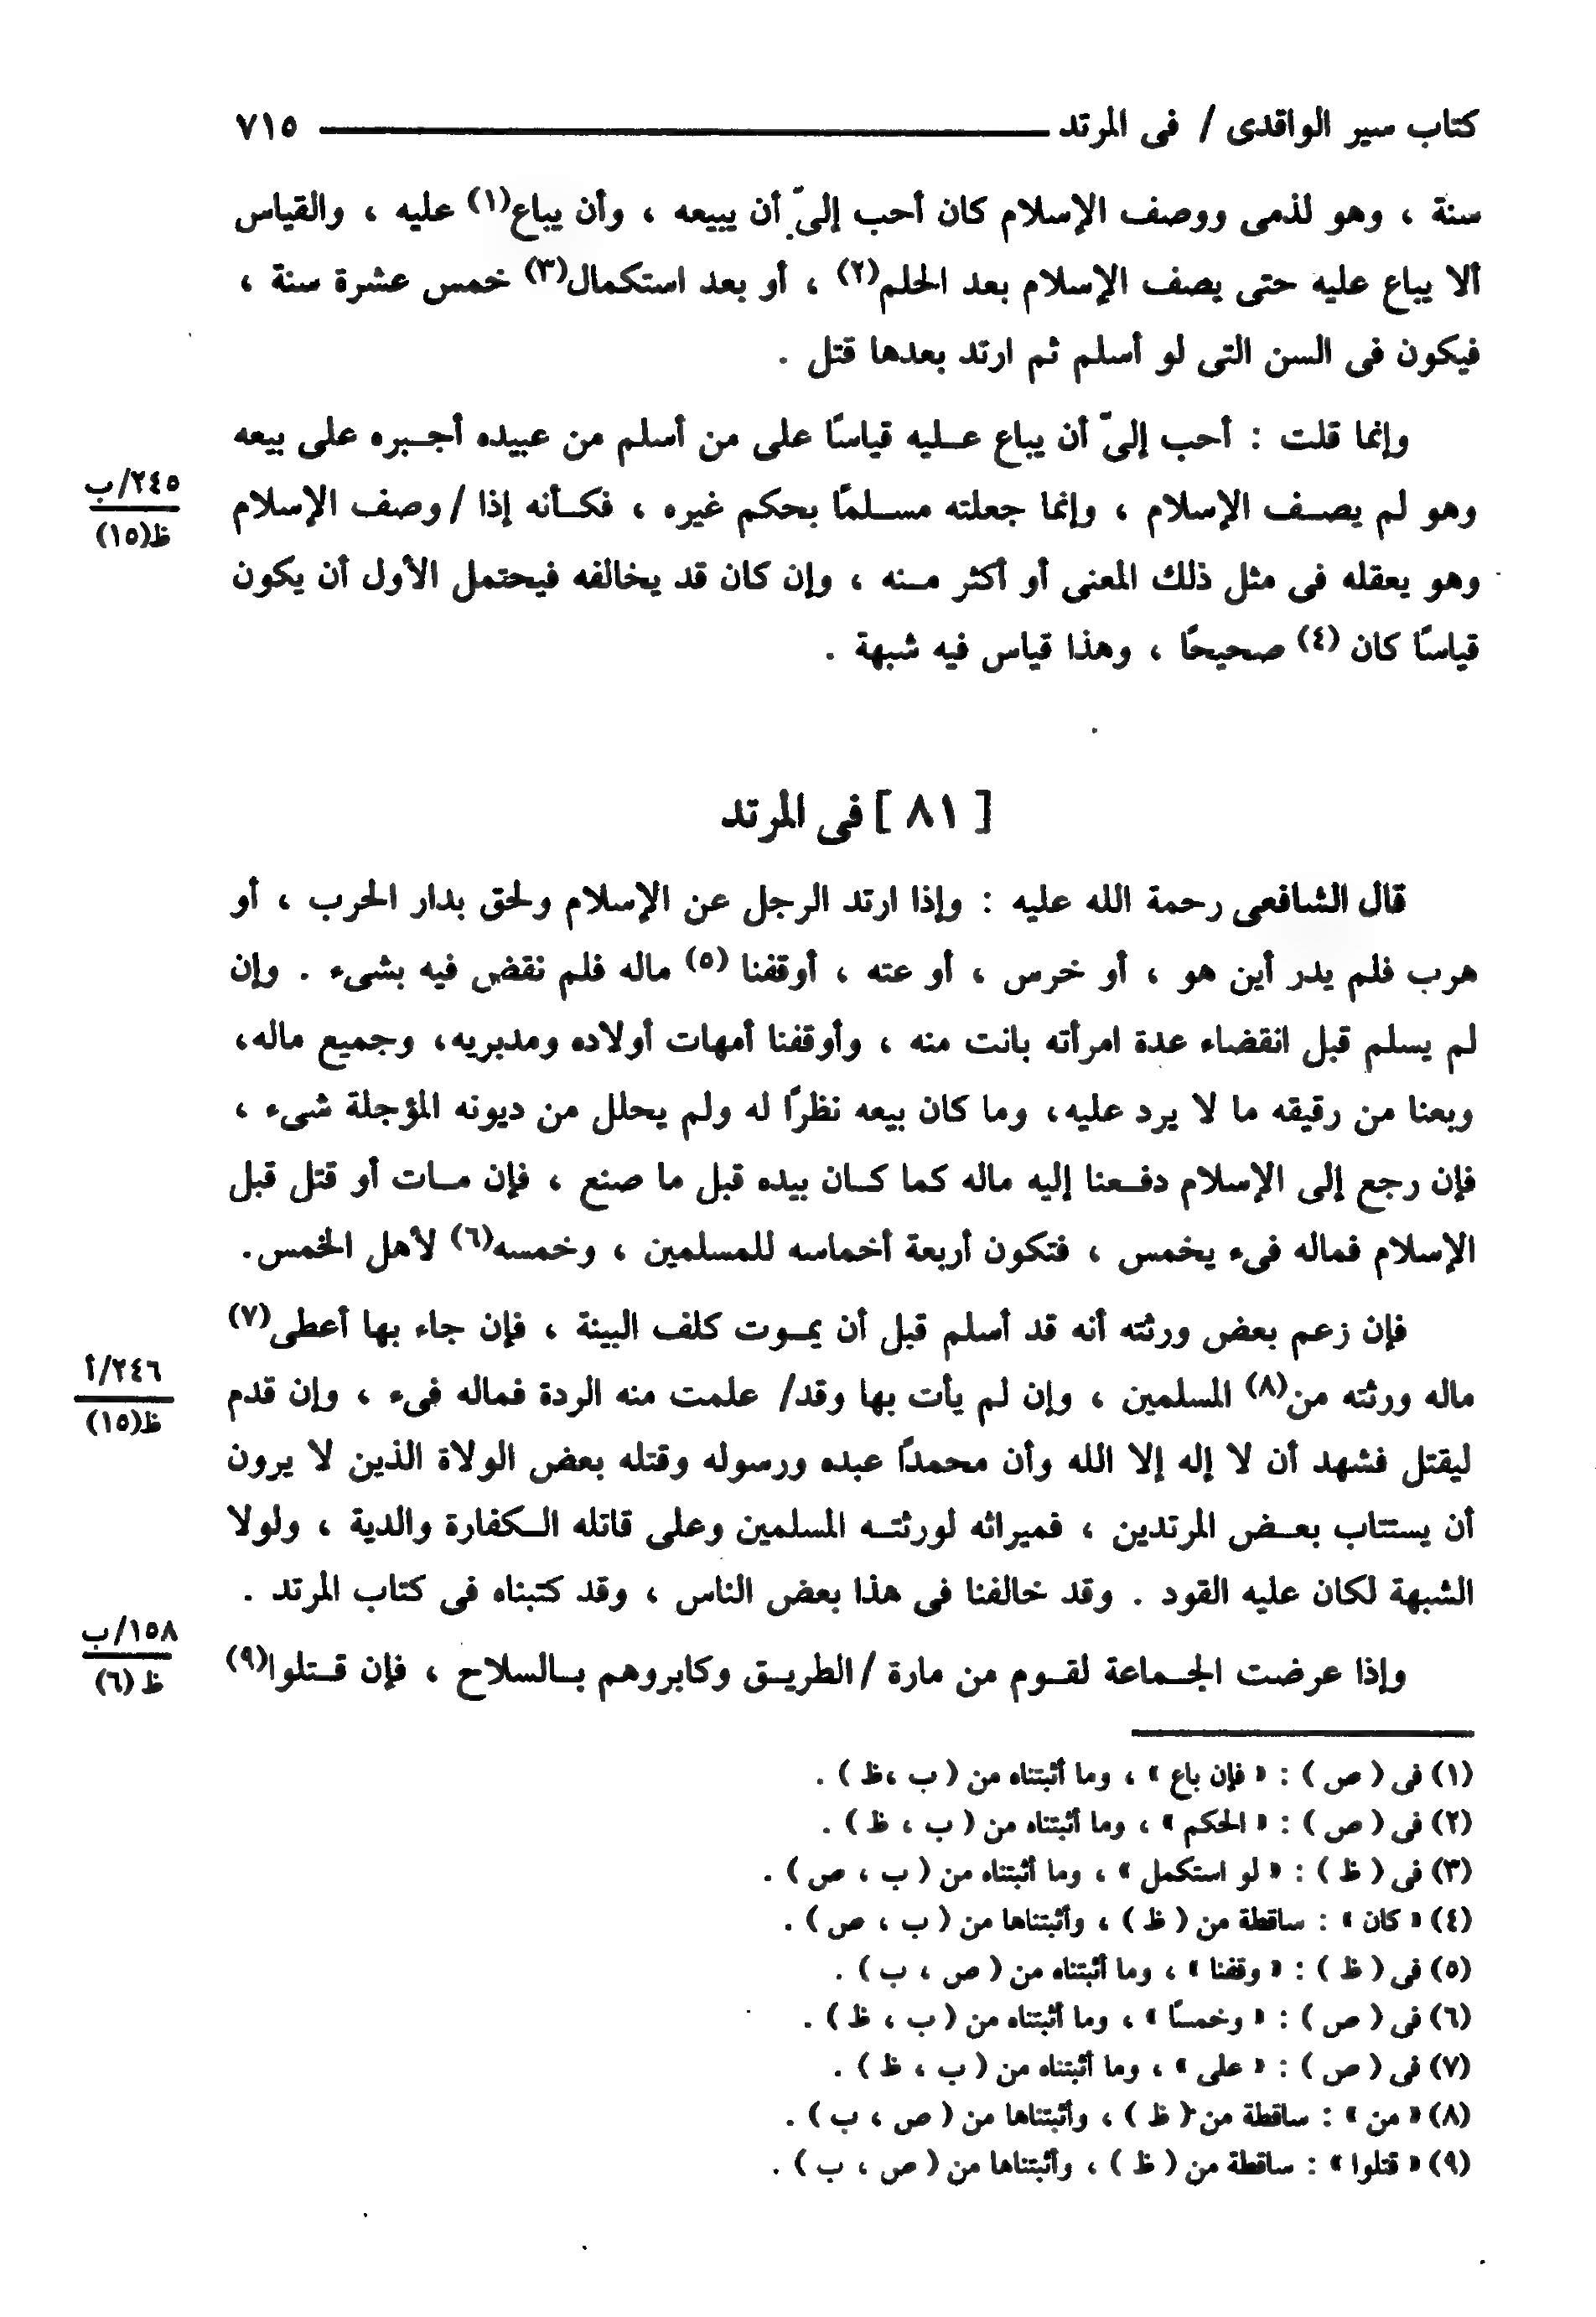 كتاب سير الواقدى / فى المرتد ٧١٥
سنة ، وهو لذمى ووصف الإسلام كان أحب إلىّ أن يبيعه ، وأن يباع(١) عليه ، والقياس
ألا يباع عليه حتى يصف الإسلام بعد الحلم(٢) ، أو بعد استكمال(٣) خمس عشرة سنة ،
فيكون فى السن التى لو أسلم ثم ارتد بعدها قتل .
وإنما قلت : أحب إلىّ أن يباع عليه قياسًا على من أسلم من عبيده أجبره على بيعه
وهو لم يصف الإسلام ، وإنما جعلته مسلمًا بحكم غيره ، فكأنه إذا / وصف الإسلام
٢٤٥/ب
ظ(١٥)
وهو يعقله فى مثل ذلك المعنى أو أكثر منه ، وإن كان قد يخالفه فيحتمل الأول أن يكون
قياسًا كان (٤) صحيحًا ، وهذا قياس فيه شبهة .
[ ٨١ ] فى المرتد
قال الشافعى رحمة الله عليه : وإذا ارتد الرجل عن الإسلام ولحق بدار الحرب ، أو
هرب فلم يدر أين هو ، أو خرس ، أو عته ، أوقفنا (٥) ماله فلم نقض فيه بشىء . وإن
لم يسلم قبل انقضاء عدة امرأته بانت منه ، وأوقفنا أمهات أولاده ومدبريه، وجميع ماله،
وبعنا من رقيقه ما لا يرد عليه، وما كان بيعه نظرًا له ولم يحلل من ديونه المؤجلة شىء ،
فإن رجع إلى الإسلام دفعنا إليه ماله كما كان بيده قبل ما صنع ، فإن مات أو قتل قبل
الإسلام فماله فىء يخمس ، فتكون أربعة أخماسه للمسلمين ، وخمسه(٦) لأهل الخمس.
فإن زعم بعض ورثته أنه قد أسلم قبل أن يموت كلف البينة ، فإن جاء بها أعطى(٧)
ماله ورثته من(٨) المسلمين ، وإن لم يأت بها وقد/ علمت منه الردة فماله فىء ، وإن قدم
٢٤٦/أ
ظ(١٥)
ليقتل فشهد أن لا إله إلا الله وأن محمدًا عبده ورسوله وقتله بعض الولاة الذين لا يرون
أن يستتاب بعض المرتدين ، فميراثه لورثته المسلمين وعلى قاتله الكفارة والدية ، ولولا
الشبهة لكان عليه القود . وقد خالفنا فى هذا بعض الناس ، وقد كتبناه فى كتاب المرتد .
وإذا عرضت الجماعة لقوم من مارة / الطريق وكابروهم بالسلاح ، فإن قتلوا(٩)
١٥٨/ب
ظ (٦)
(١) فى ( ص ) : « فإن باع » ، وما أثبتناه من ( ب ،ظ ) .
(٢) فى ( ص ) : « الحكم » ، وما أثبتناه من ( ب ، ظ ) .
(٣) فى ( ظ ) : « لو استكمل » ، وما أثبتناه من ( ب ، ص ) .
(٤) « كان » : ساقطة من ( ظ ) ، وأثبتناها من ( ب ، ص ) .
(٥) فى ( ظ ) : « وقفنا » ، وما أثبتناه من ( ص ، ب ) .
(٦) فى ( ص ) : « وخمسًا » ، وما أثبتناه من ( ب ، ظ ) .
(٧) فى ( ص ) : « على » ، وما أثبتناه من ( ب ، ظ ) .
(٨) « من » : ساقطة من ( ظ ) ، وأثبتناها من ( ص ، ب ) .
(٩) « قتلوا » : ساقطة من ( ظ ) ، وأثبتناها من ( ص ، ب ) .